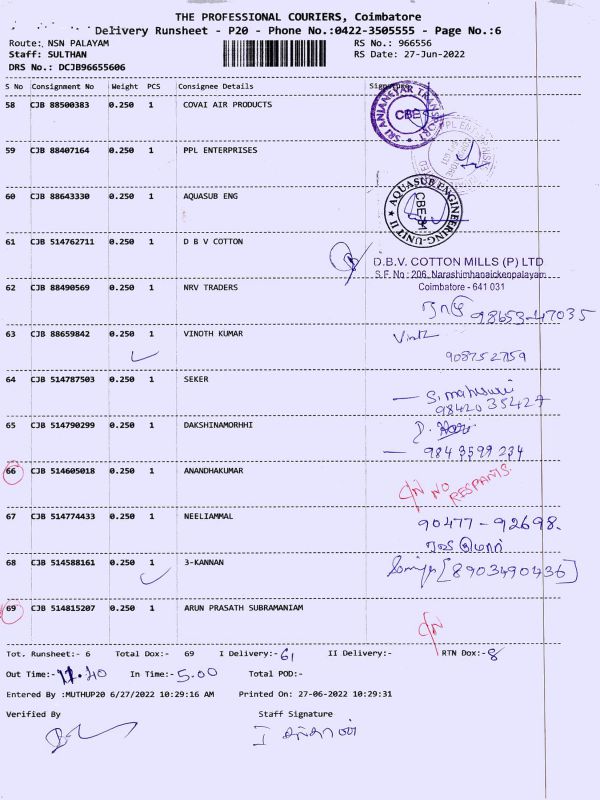 THE PROFESSIONAL COURIERS, Coimbatore
Delivery Runsheet - P20 - Phone No.:0422-3505555 - Page No.:6
Route: NSN PALAYAM RS No.: 966556
Staff: SULTHAN RS Date: 27-Jun-2022
DRS No.: DCJB96655606
S No Consignment No Weight PCS Consignee Details Signature
58 CJB 88500383 0.250 1 COVAI AIR PRODUCTS
SRI ANJANSTAR TRANSPORT CBE
59 CJB 88407164 0.250 1 PPL ENTERPRISES
PPL ENTERPRISES
60 CJB 88643330 0.250 1 AQUASUB ENG
AQUASUB ENGINEERING-UNIT II CBE-31
61 CJB 514762711 0.250 1 D B V COTTON
D.B.V. COTTON MILLS (P) LTD
S.F. No : 206, Narashimhanaickenpalayam,
Coimbatore - 641 031
62 CJB 88490569 0.250 1 NRV TRADERS
98653-47035
63 CJB 88659842 0.250 1 VINOTH KUMAR
9087527159
64 CJB 514787503 0.250 1 SEKER
S. maheswari
9842035427
65 CJB 514790299 0.250 1 DAKSHINAMORHHI
9843599234
66 CJB 514605018 0.250 1 ANANDHAKUMAR
C/N NO RESPANTS.
67 CJB 514774433 0.250 1 NEELIAMMAL
90477-92698.
68 CJB 514588161 0.250 1 3-KANNAN
[8903490436]
69 CJB 514815207 0.250 1 ARUN PRASATH SUBRAMANIAM
C/N
Tot. Runsheet:- 6 Total Dox:- 69 I Delivery:- 61 II Delivery:- RTN Dox:- 8
Out Time:- 11.40 In Time:- 5.00 Total POD:-
Entered By :MUTHUP20 6/27/2022 10:29:16 AM Printed On: 27-06-2022 10:29:31
Verified By Staff Signature